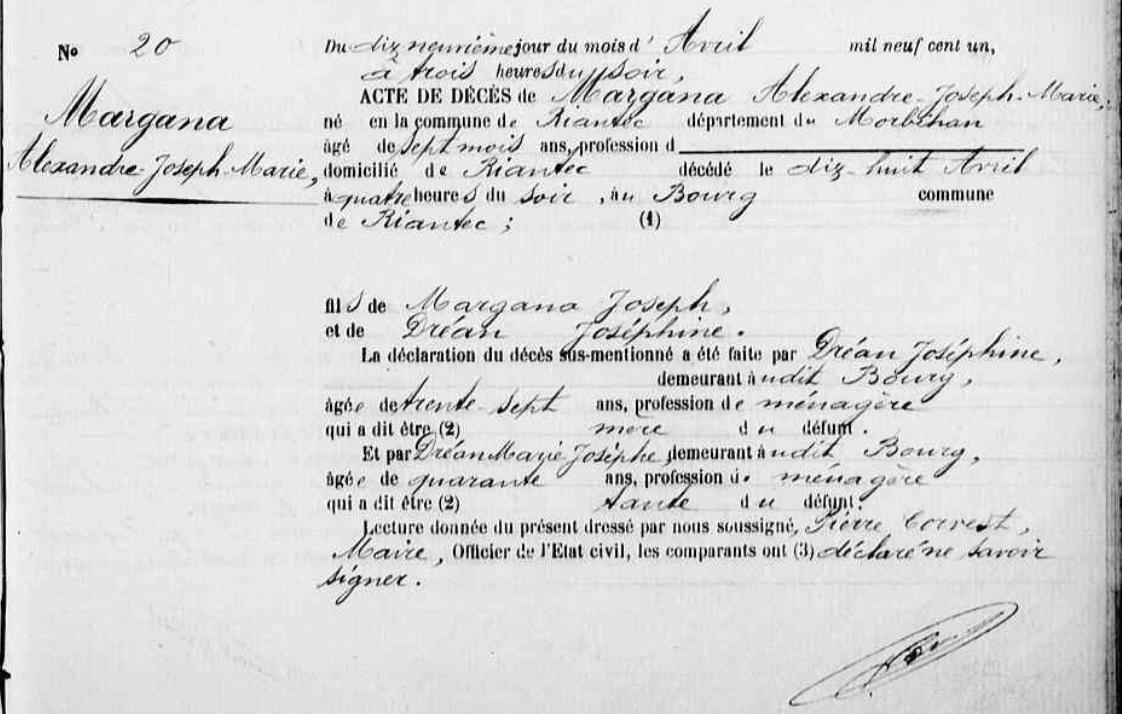 No 20
Du dix neuvième jour du mois d' Avril mil neuf cent un,
à trois heures du soir,
ACTE DE DÉCÈS de Margana Alexandre-Joseph-Marie,
Margana
Alexandre-Joseph-Marie,
né en la commune de Riantec département du Morbihan
âgé de sept mois ans, profession d
domicilié de Riantec décédé le dix-huit Avril
à quatre heures du soir, au Bourg commune
de Riantec ; (1)
fils de Margana Joseph,
et de Dréan Joséphine.
La déclaration du décès sus-mentionné a été faite par Dréan Joséphine,
demeurant audit Bourg,
âgée de trente-sept ans, profession de ménagère
qui a dit être (2) mère du défunt.
Et par Dréan Marie Josèphe, demeurant audit Bourg,
âgée de quarante ans, profession de ménagère
qui a dit être (2) tante du défunt.
Lecture donnée du présent dressé par nous soussigné, Pierre Corvest,
Maire, Officier de l'Etat civil, les comparants ont (3) déclaré ne savoir
signer.